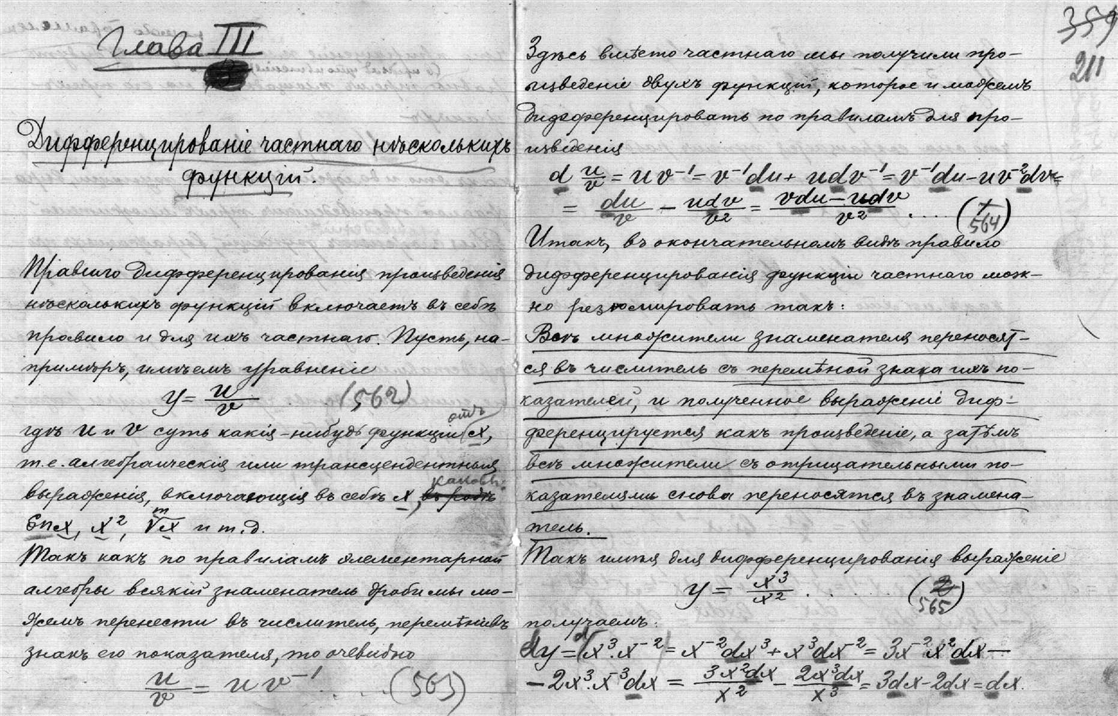 Глава III
Дифференцированіе частнаго нѣсколькихъ
функцій.
Правило дифференцированія произведенія
нѣсколькихъ функцій включаетъ въ себѣ
правило и для ихъ частнаго. Пусть, на-
примѣръ, имѣемъ уравненіе
y = u/v (562)
гдѣ u и v суть какія-нибудь функціи отъ x,
т.е. алгебраическія или трансцендентныя
выраженія, включающія въ себѣ x, каковы:
Sn x, x², ᵐ√x и т.д.
Такъ какъ по правиламъ элементарной
алгебры всякій знаменатель дроби мы мо-
жемъ перенести въ числитель, перемѣнивъ
знакъ его показателя, то очевидно
u/v = u v⁻¹ . . . (563)
359
211
Здѣсь вмѣсто частнаго мы получили про-
ызведеніе двухъ функцій, которое и можемъ
дифференцировать по правиламъ для про-
изведенія
d u/v = u v⁻¹ = v⁻¹du + u dv⁻¹ = v⁻¹du − uv⁻²dv =
= du/v − udv/v² = vdu − udv/v² .... (564)
Итакъ, въ окончательномъ видѣ правило
дифференцированія функціи частнаго мож-
но резюмировать такъ:
Всѣ множители знаменателя переносят-
ся въ числитель съ перемѣной знака ихъ по-
казателей, и полученное выраженіе диф-
ференцируется какъ произведеніе, а затѣмъ
всѣ множители съ отрицательными по-
казателями снова переносятся въ знамена-
тель.
Такъ имѣя для дифференцированія выраженіе
y = x³/x² . . . (565)
получаемъ:
dy = d(x³·x⁻²) = x⁻²dx³ + x³dx⁻² = 3x⁻²x²dx −
− 2x³·x⁻³dx = 3x²dx/x² − 2x³dx/x³ = 3dx − 2dx = dx.